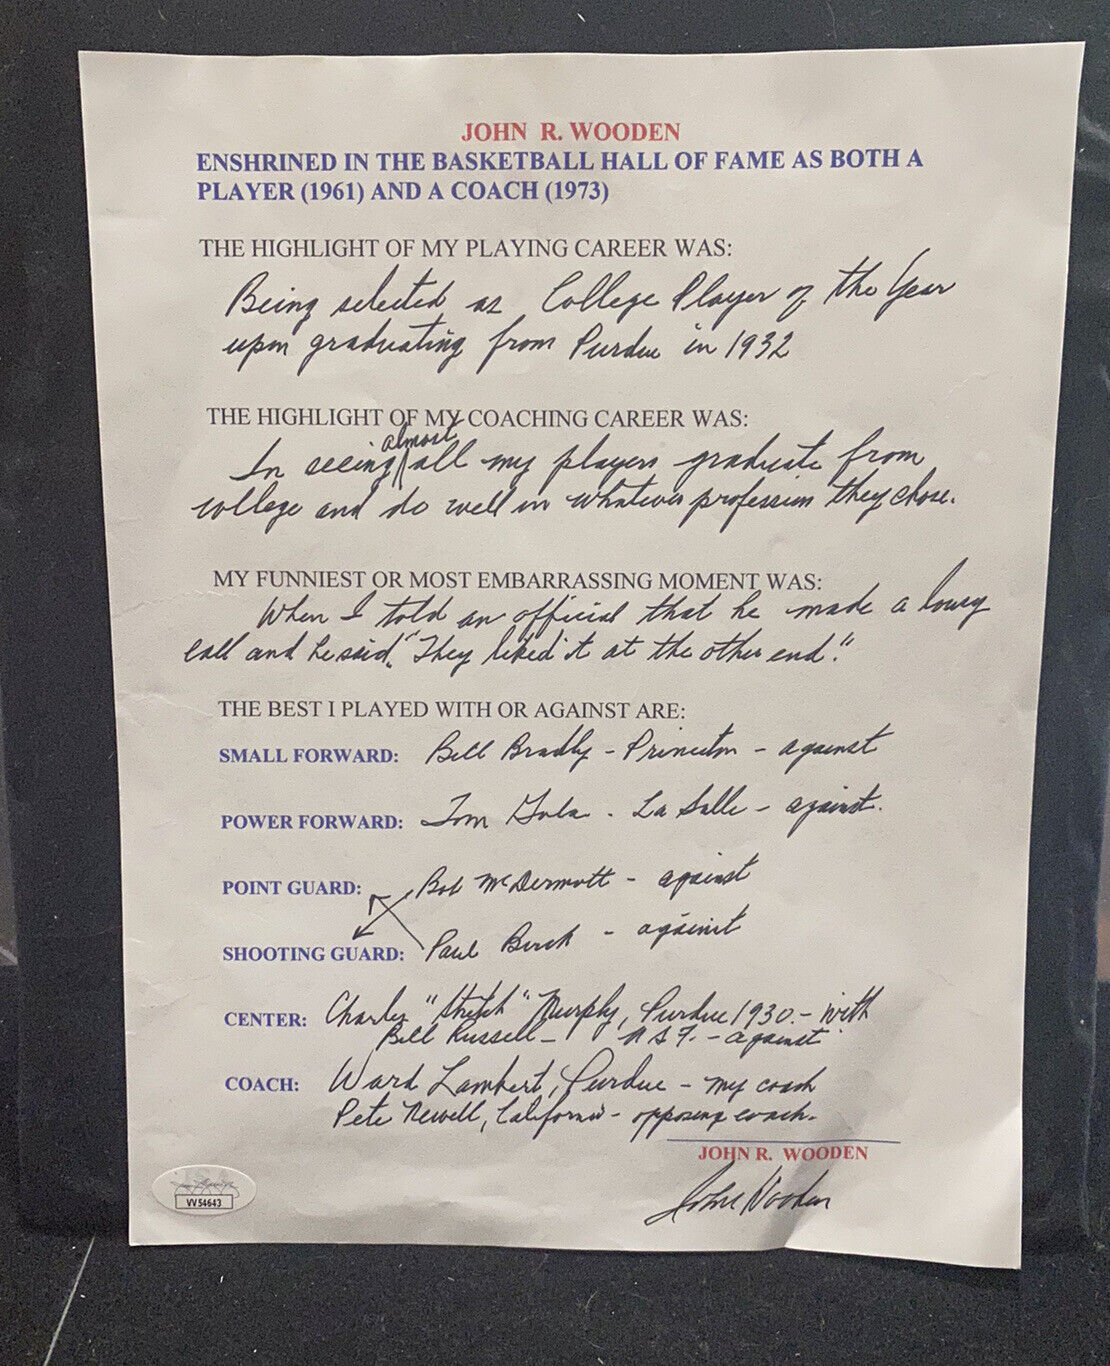 JOHN R. WOODEN
ENSHRINED IN THE BASKETBALL HALL OF FAME AS BOTH A
PLAYER (1961) AND A COACH (1973)
THE HIGHLIGHT OF MY PLAYING CAREER WAS:
Being selected as College Player of the Year
upon graduating from Purdue in 1932
THE HIGHLIGHT OF MY COACHING CAREER WAS:
In seeing almost all my players graduate from
college and do well in whatever profession they chose.
MY FUNNIEST OR MOST EMBARRASSING MOMENT WAS:
When I told an official that he made a lousy
call and he said, "They liked it at the other end."
THE BEST I PLAYED WITH OR AGAINST ARE:
SMALL FORWARD: Bill Bradly - Princeton - against
POWER FORWARD: Tom Gola - La Salle - against.
POINT GUARD: Bob McDermott - against
SHOOTING GUARD: Paul Birch - against
CENTER: Charley "Stretch" Murphy, Purdue 1930. - with
Bill Russell - U S F. - against
COACH: Ward Lambert, Purdue - my coach
Pete Newell, California - opposing coach.
JOHN R. WOODEN
John Wooden
VV54643